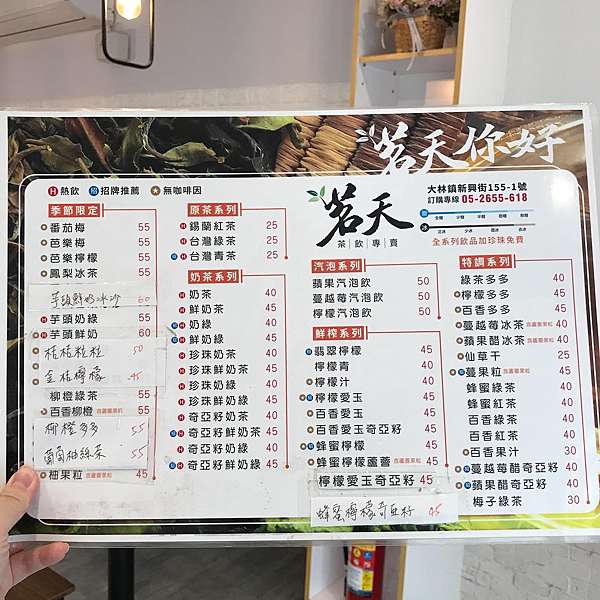 茗天你好
H 熱飲 招牌推薦 無咖啡因
茗天
茶飲專賣
大林鎮新興街155-1號
訂購專線 05-2655-618
全系列飲品加珍珠免費
季節限定
番茄梅 55
芭樂梅 55
芭樂檸檬 55
鳳梨冰茶 55
芋頭鮮奶冰沙 60
H 芋頭奶綠 55
H 芋頭鮮奶 60
桔桔粒粒 50
金桔檸檬 45
柳橙綠茶 55
百香柳橙 含蘆薈果粒 55
柳橙多多 55
葡萄柚綠茶 55
柚果粒 含蘆薈果粒 45
原茶系列
H 錫蘭紅茶 25
H 台灣綠茶 25
H 台灣青茶 25
奶茶系列
H 奶茶 40
H 鮮奶茶 45
H 奶綠 40
H 鮮奶綠 45
H 珍珠奶茶 40
H 珍珠鮮奶茶 45
H 珍珠奶綠 40
H 珍珠鮮奶綠 45
H 奇亞籽奶茶 40
H 奇亞籽鮮奶茶 45
H 奇亞籽奶綠 40
H 奇亞籽鮮奶綠 45
汽泡系列
蘋果汽泡飲 50
蔓越莓汽泡飲 50
檸檬汽泡飲 50
鮮榨系列
翡翠檸檬 45
檸檬青 40
檸檬汁 40
檸檬愛玉 45
百香愛玉 45
百香愛玉奇亞籽 45
蜂蜜檸檬 45
蜂蜜檸檬蘆薈 含蘆薈果粒 45
檸檬愛玉奇亞籽 45
蜂蜜檸檬奇亞籽 45
特調系列
綠茶多多 40
檸檬多多 45
百香多多 45
蔓越莓冰茶 含蘆薈果粒 40
蘋果醋冰茶 含蘆薈果粒 40
仙草干 25
蔓果粒 含蘆薈果粒 45
蜂蜜綠茶 40
蜂蜜紅茶 40
百香綠茶 40
百香紅茶 40
百香果汁 30
蔓越莓醋奇亞籽 40
蘋果醋奇亞籽 40
梅子綠茶 30